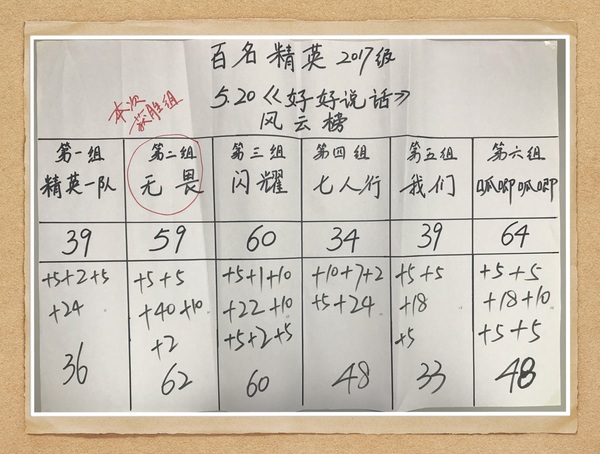 百名精英 2017级
5.20《好好说话》
风云榜
本次
获胜组
第一组 第二组 第三组 第四组 第五组 第六组
精英一队 无畏 闪耀 七人行 我们 呱呱呱呱
39 59 60 34 39 64
+5+2+5 +5+5 +5+1+10 +10+7+2 +5+5 +5+5
+24 +40+10 +22+10 +5+24 +18 +18+10
+2 +5+2+5 +5 +5+5
36 62 60 48 33 48